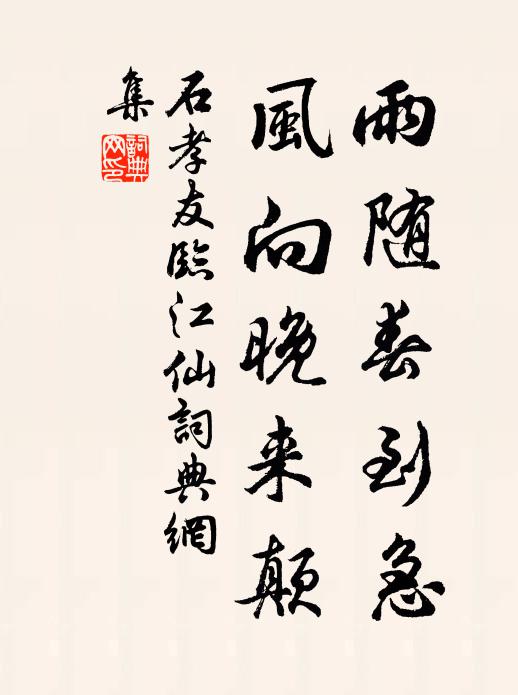 雨随春到急
風向晚来颠
石孝友臨江仙詞典網
集
詞典网印